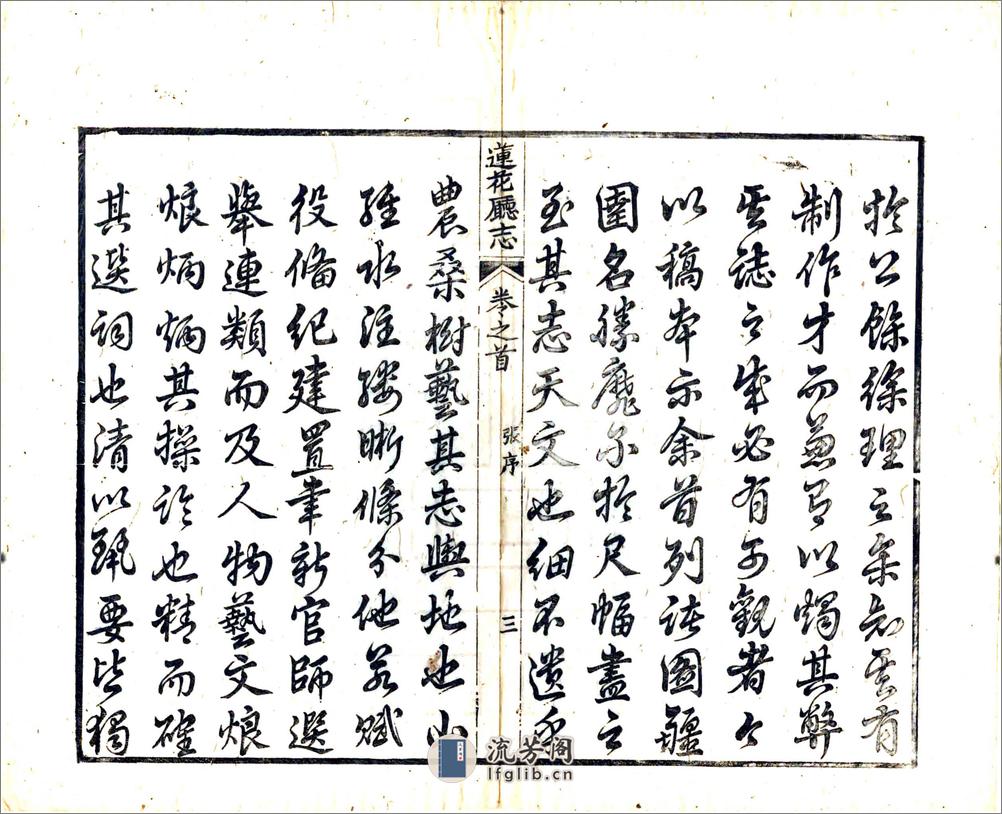 於公餘徐理之余知其有
制作才而兼有以燭其弊
其誌之成必有可觀者今
以稿本示余首列諸圖疆
圍名勝靡不於尺幅盡之
至其志天文也細不遺乎
農桑樹藝其志輿地也山
經水注縷晰條分他若賦
役備紀建置聿新官師選
舉連類而及人物藝文烺
烺炳炳其操論也精而確
其選詞也清以甄要皆獨
蓮花廳志
卷之首
張序
三
流芳阁
lfglib.cn